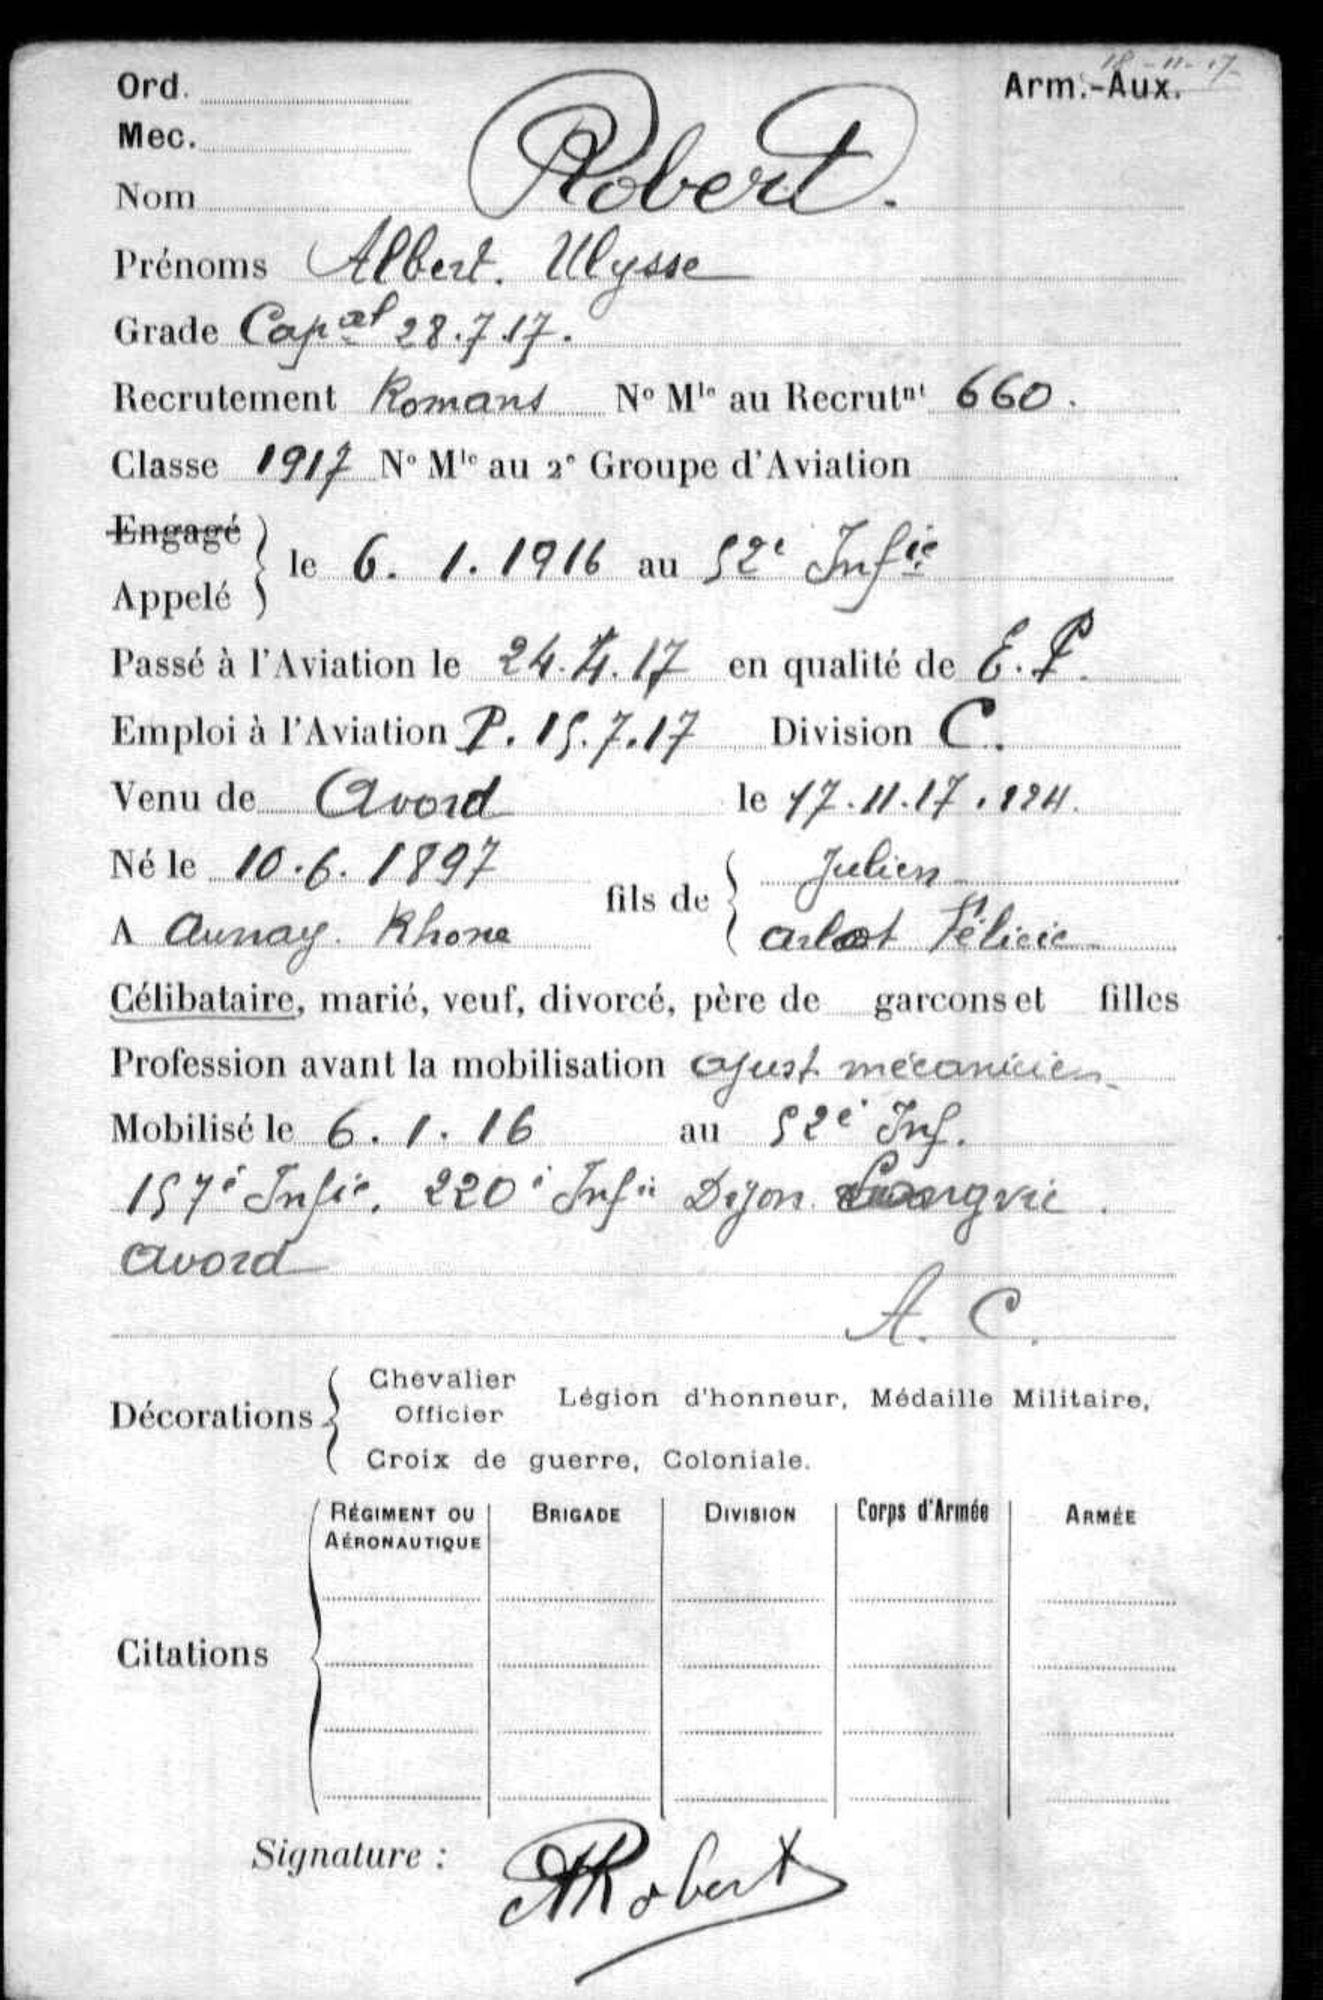 18-11-17
Ord. Arm.-Aux.
Mec.
Nom Robert.
Prénoms Albert. Ulysse
Grade Capal 28.7.17.
Recrutement Romans No Mle au Recrutnt 660.
Classe 1917 No Mle au 2e Groupe d'Aviation
Engagé
Appelé le 6. 1. 1916 au 52e Infie
Passé à l'Aviation le 24.4.17 en qualité de E.P.
Emploi à l'Aviation P. 15.7.17 Division C.
Venu de Avord le 17.11.17. 124.
Né le 10.6.1897 fils de Julien
A Aunay. Rhone Arlot Félicie
Célibataire, marié, veuf, divorcé, père de garçons et filles
Profession avant la mobilisation ajust mécanicien
Mobilisé le 6. 1. 16 au 52e Inf.
157e Infie. 220e Infie Dijon. Longvic.
Avord
A. C.
Décorations Chevalier
Officier Légion d'honneur, Médaille Militaire,
Croix de guerre, Coloniale.
Citations RÉGIMENT OU AÉRONAUTIQUE BRIGADE DIVISION Corps d'Armée ARMÉE
Signature : ARobert